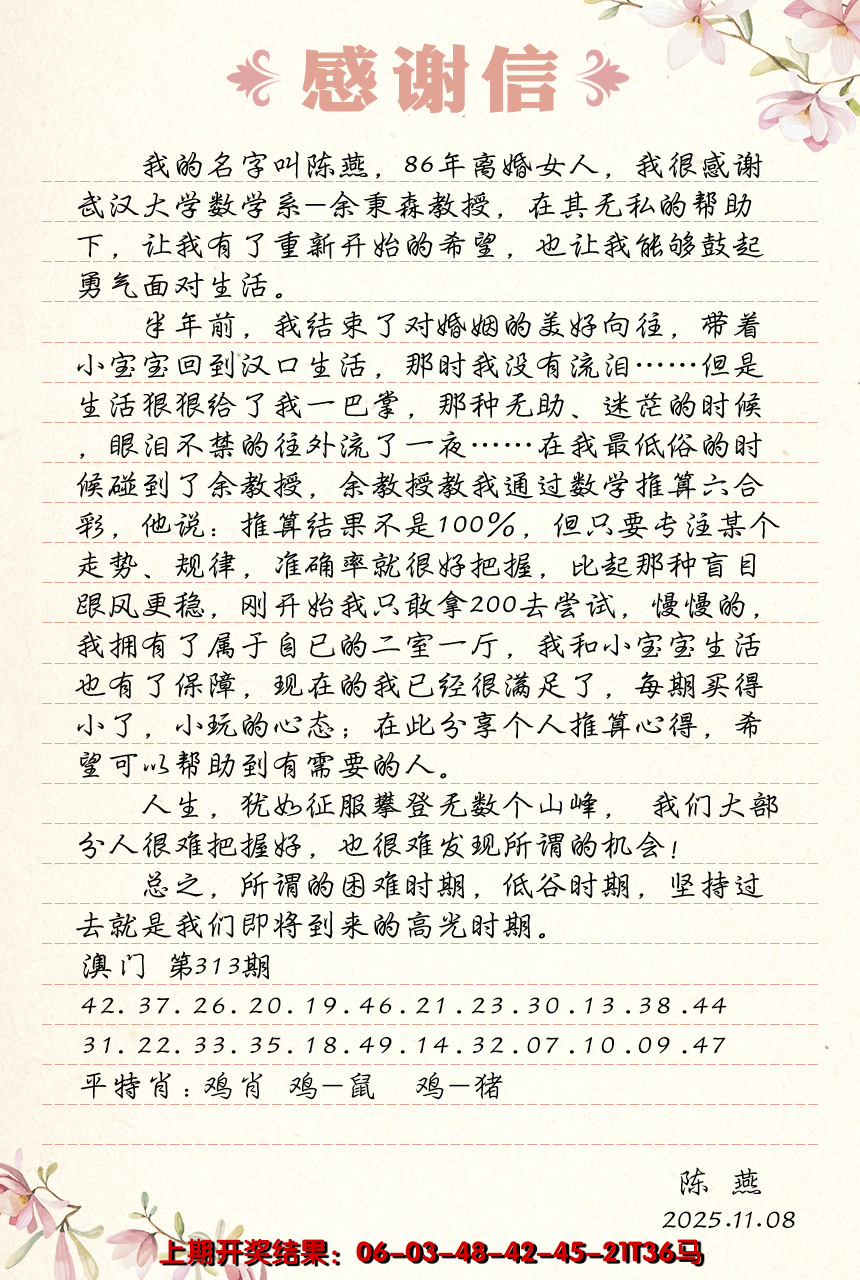 感谢信
我的名字叫陈燕，86年离婚女人，我很感谢
武汉大学数学系—余秉森教授，在其无私的帮助
下，让我有了重新开始的希望，也让我能够鼓起
勇气面对生活。
半年前，我结束了对婚姻的美好向往，带着
小宝宝回到汉口生活，那时我没有流泪……但是
生活狠狠给了我一巴掌，那种无助、迷茫的时候
，眼泪不禁的往外流了一夜……在我最低俗的时
候碰到了余教授，余教授教我通过数学推算六合
彩，他说：推算结果不是100%，但只要专注某个
走势、规律，准确率就很好把握，比起那种盲目
跟风更稳，刚开始我只敢拿200去尝试，慢慢的，
我拥有了属于自已的二室一厅，我和小宝宝生活
也有了保障，现在的我已经很满足了，每期买得
小了，小玩的心态；在此分享个人推算心得，希
望可以帮助到有需要的人。
人生，犹如征服攀登无数个山峰， 我们大部
分人很难把握好，也很难发现所谓的机会！
总之，所谓的困难时期，低谷时期，坚持过
去就是我们即将到来的高光时期。
澳门 第313期
42.37.26.20.19.46.21.23.30.13.38.44
31.22.33.35.18.49.14.32.07.10.09.47
平特肖：鸡肖 鸡—鼠 鸡—猪
陈 燕
2025.11.08
上期开奖结果：06-03-48-42-45-21T36马